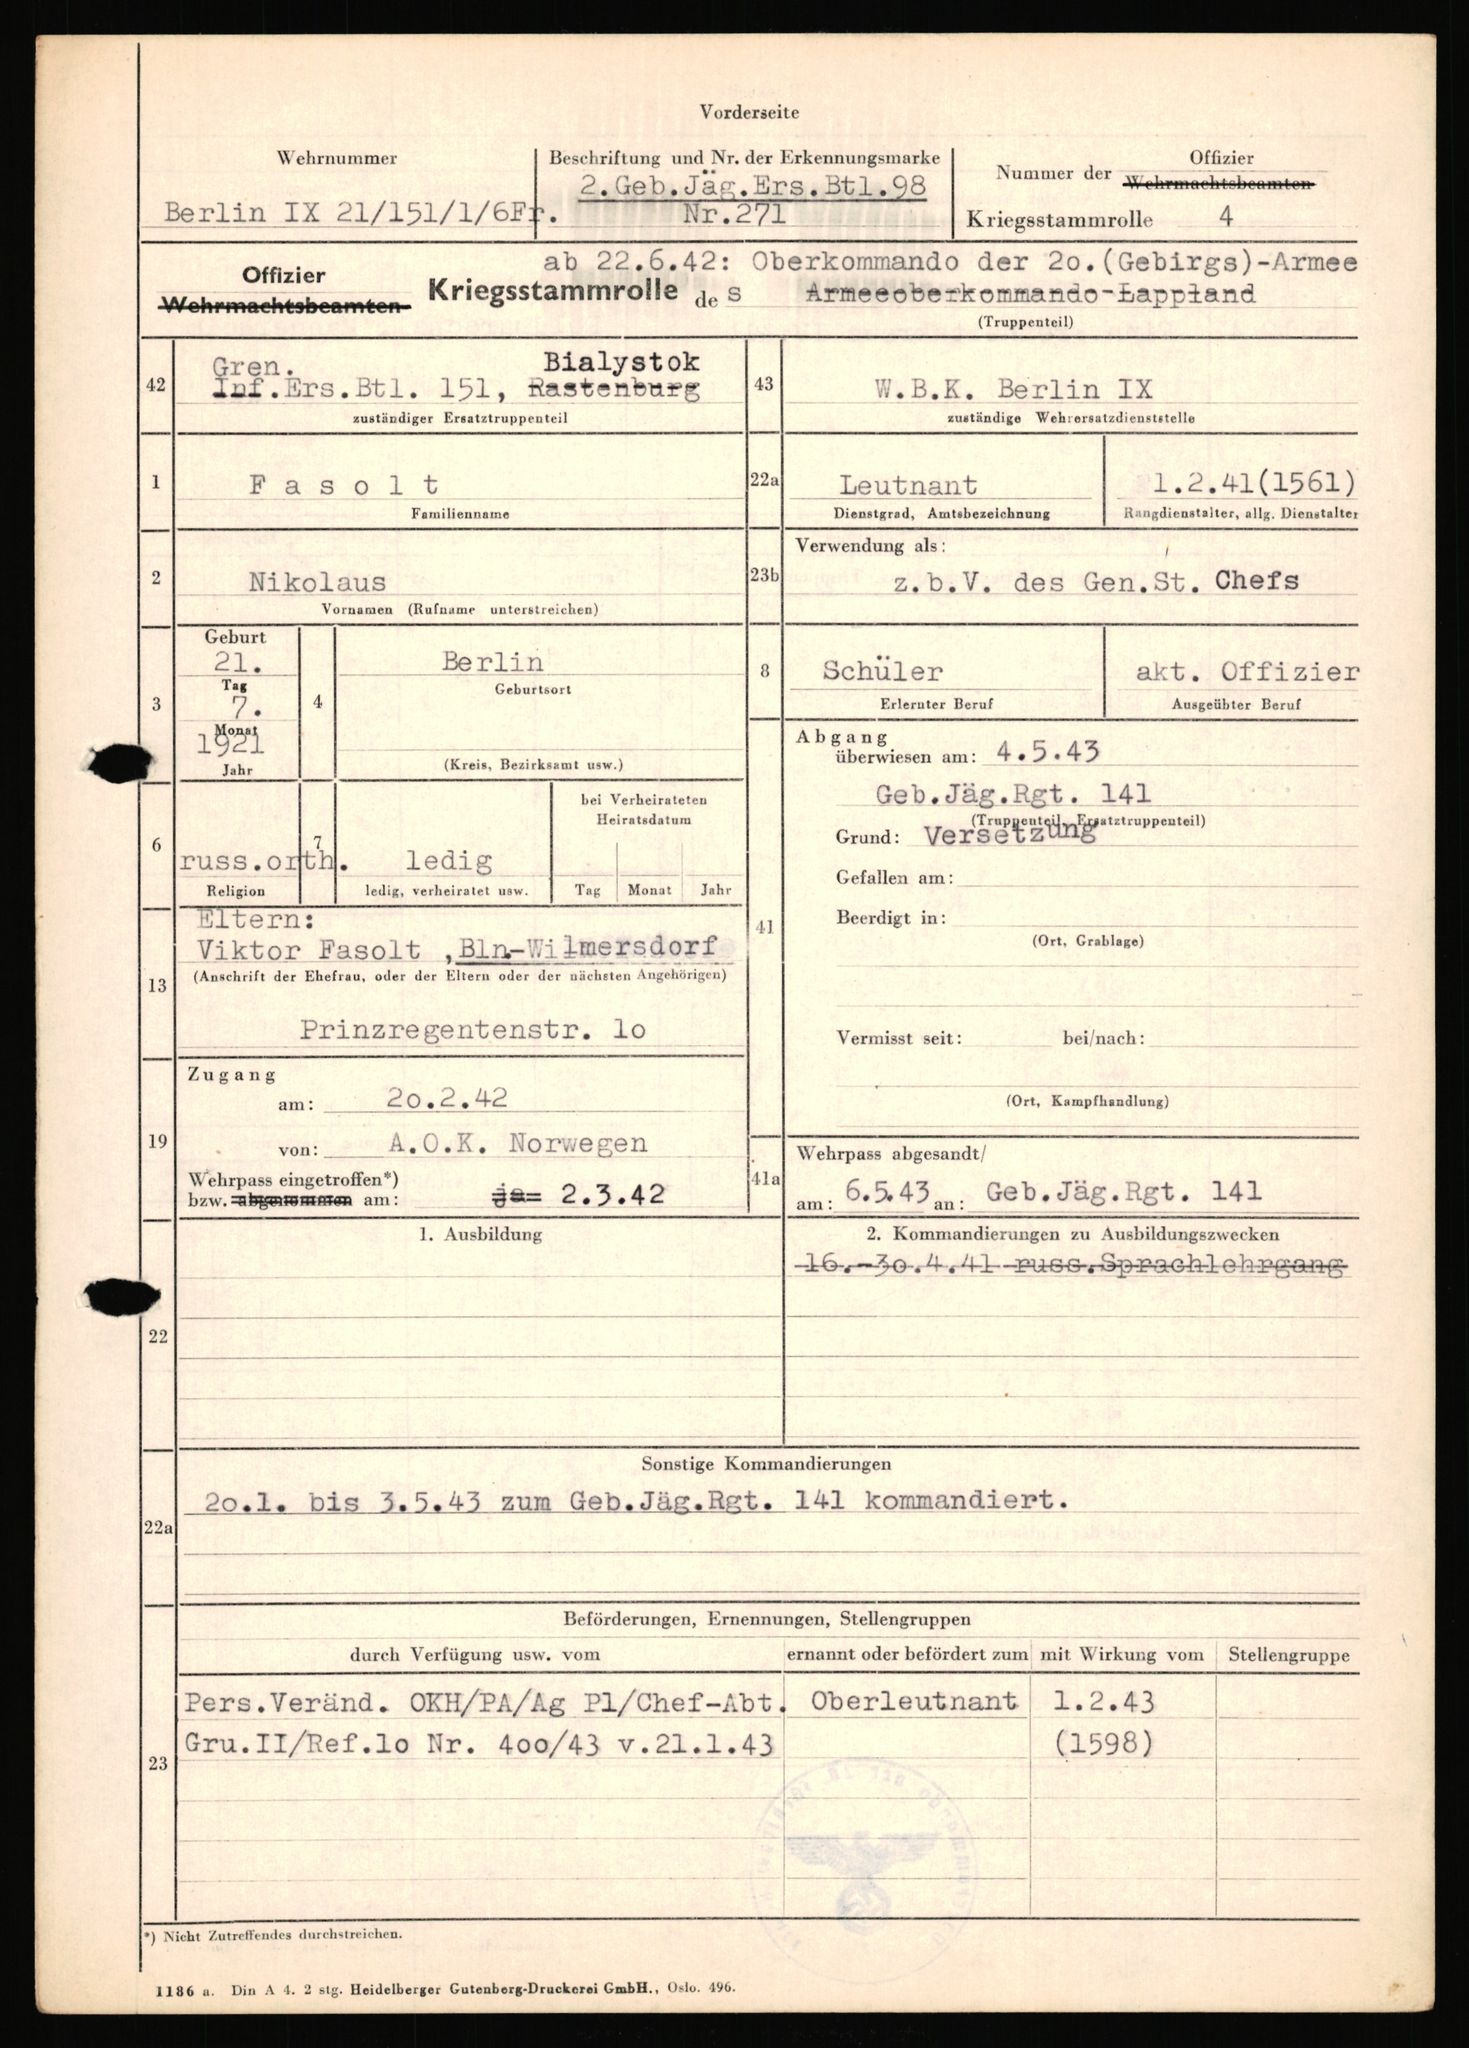 Vorderseite
Wehrnummer
Berlin IX 21/151/1/6Fr.
Beschriftung und Nr. der Erkennungsmarke
2.Geb.Jäg.Ers.Btl.98
Nr.271
Nummer der Offizier Wehrmachtsbeamten
Kriegsstammrolle 4
ab 22.6.42: Oberkommando der 2o.(Gebirgs)-Armee
Offizier
Wehrmachtsbeamten Kriegsstammrolle des Armeeoberkommando-Lappland
(Truppenteil)
42 Gren. Bialystok
Inf.Ers.Btl. 151, Rastenburg
zuständiger Ersatztruppenteil
43 W.B.K. Berlin IX
zuständige Wehrersatzdienststelle
1 Fasolt
Familienname
22a Leutnant
Dienstgrad, Amtsbezeichnung
1.2.41(1561)
Rangdienstalter, allg. Dienstalter
2 Nikolaus
Vornamen (Rufname unterstreichen)
Verwendung als:
23b z.b.V. des Gen.St. Chefs
3 Geburt
21.
Tag
7.
Monat
1921
Jahr
4 Berlin
Geburtsort
(Kreis, Bezirksamt usw.)
8 Schüler
Erlernter Beruf
akt. Offizier
Ausgeübter Beruf
6 russ.orth.
Religion
7 ledig
ledig, verheiratet usw.
bei Verheirateten
Heiratsdatum
Tag Monat Jahr
Eltern:
Viktor Fasolt ,Bln.-Wilmersdorf
13 (Anschrift der Ehefrau, oder der Eltern oder der nächsten Angehörigen)
Prinzregentenstr. 1o
41 Abgang
überwiesen am: 4.5.43
Geb.Jäg.Rgt. 141
(Truppenteil, Ersatztruppenteil)
Grund: Versetzung
Gefallen am:
Beerdigt in:
(Ort, Grablage)
Vermisst seit: bei/nach:
(Ort, Kampfhandlung)
19 Zugang
am: 2o.2.42
von: A.O.K. Norwegen
Wehrpass eingetroffen*)
bzw. abgenommen am: ja= 2.3.42
41a Wehrpass abgesandt/
am: 6.5.43 an: Geb.Jäg.Rgt. 141
22 1. Ausbildung
2. Kommandierungen zu Ausbildungszwecken
16.-3o.4.41 russ.Sprachlehrgang
Sonstige Kommandierungen
22a 2o.1. bis 3.5.43 zum Geb.Jäg.Rgt. 141 kommandiert.
23 Beförderungen, Ernennungen, Stellengruppen
durch Verfügung usw. vom ernannt oder befördert zum mit Wirkung vom Stellengruppe
Pers.Veränd. OKH/PA/Ag Pl/Chef-Abt. Oberleutnant 1.2.43
Gru.II/Ref.1o Nr. 4oo/43 v.21.1.43 (1598)
*) Nicht Zutreffendes durchstreichen.
1186 a. Din A 4. 2 stg. Heidelberger Gutenberg-Druckerei GmbH., Oslo. 496.